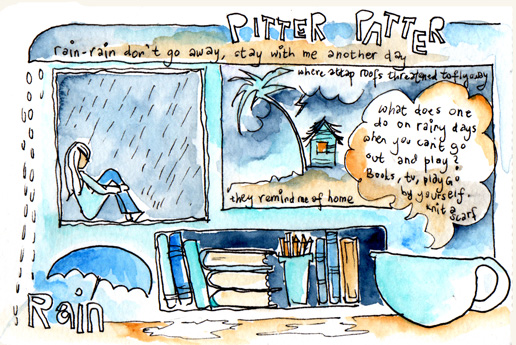 PITTER PATTER
rain-rain don't go away, stay with me another day
where attap roofs threatened to fly away
what does one
do on rainy days
when you can't go
out and play?
Books, tv, play Go
by yourself.
knit a
scarf
they remind me of home
Rain